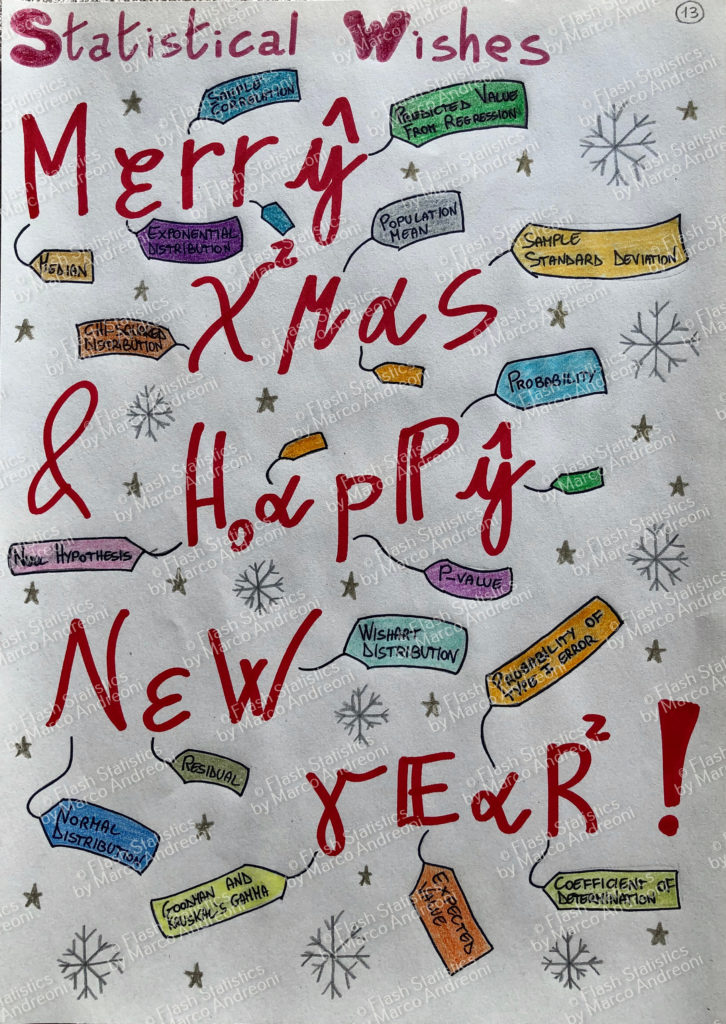 Statistical Wishes
13
SAMPLE
CORRELATION
PREDICTED VALUE
FROM REGRESSION
Mεrrŷ
MEDIAN
EXPONENTIAL
DISTRIBUTION
POPULATION
MEAN
SAMPLE
STANDARD DEVIATION
χ²μαs
CHI-SQUARED
DISTRIBUTION
PROBABILITY
&
H₀αpℙŷ
NULL HYPOTHESIS
P-VALUE
NεW
WISHART
DISTRIBUTION
PROBABILITY OF
TYPE I ERROR
RESIDUAL
γ𝔼αR²!
NORMAL
DISTRIBUTION
GOODMAN AND
KRUSKAL'S GAMMA
EXPECTED
VALUE
COEFFICIENT OF
DETERMINATION
© Flash Statistics
by Marco Andreoni